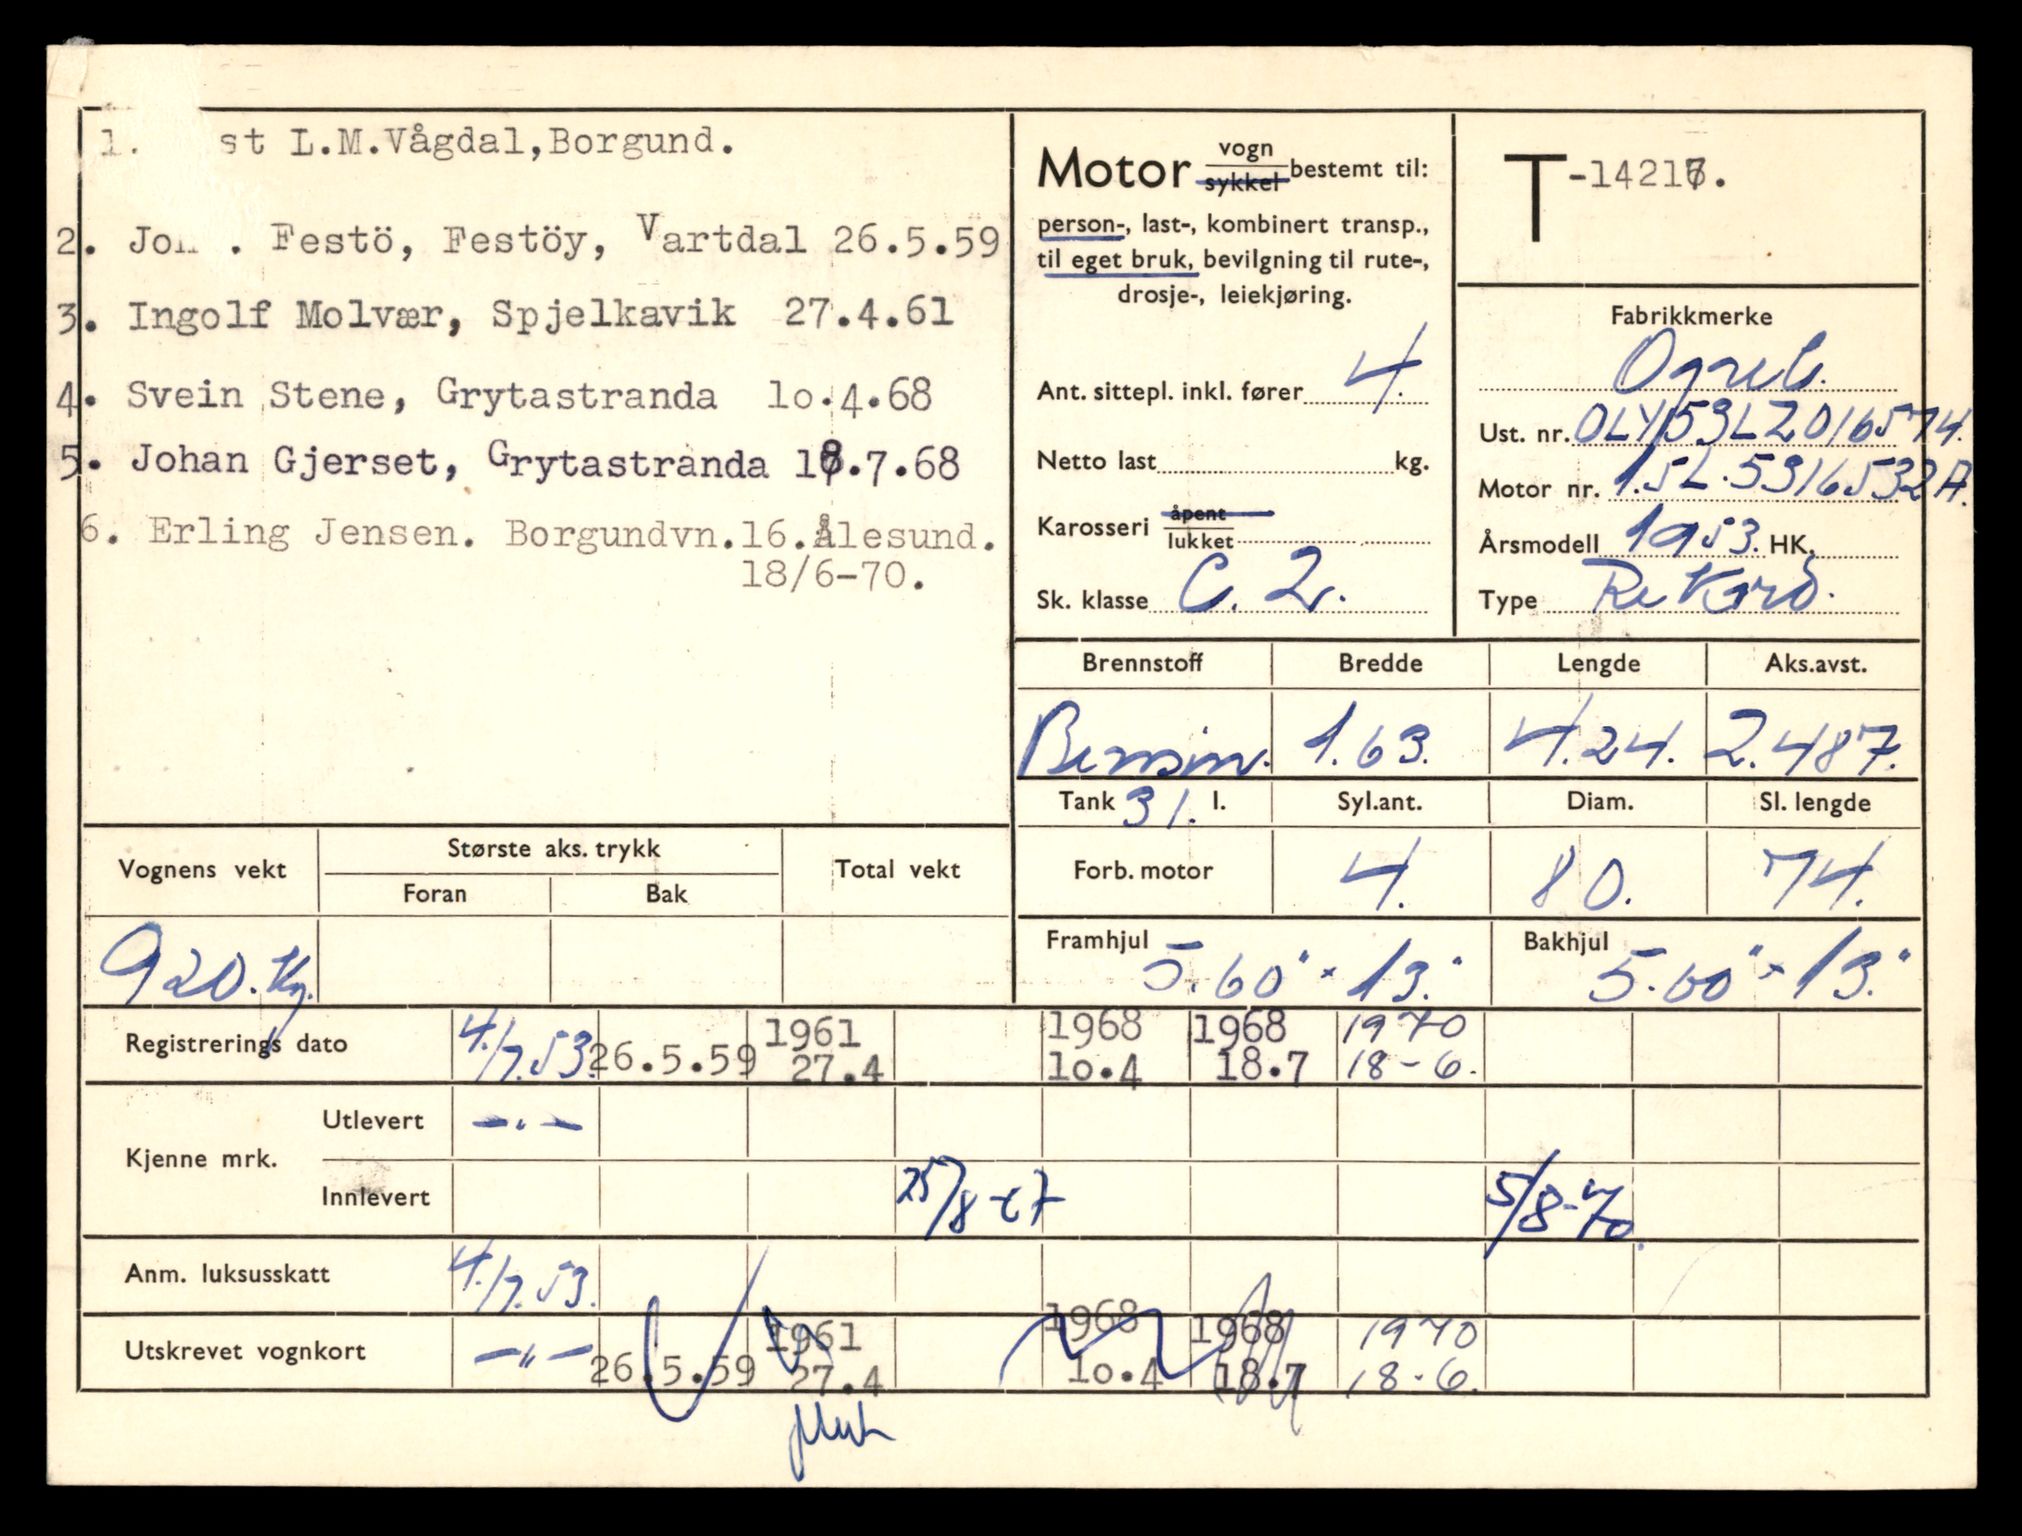 1. st L.M.Vågdal,Borgund.
2. Jo . Festö, Festöy, Vartdal 26.5.59
3. Ingolf Molvær, Spjelkavik 27.4.61
4. Svein Stene, Grytastranda lo.4.68
5. Johan Gjerset, Grytastranda 18.7.68
6. Erling Jensen. Borgundvn.16.Ålesund.
18/6-70.
Motor vogn
sykkel bestemt til:
person-, last-, kombinert transp.,
til eget bruk, bevilgning til rute-,
drosje-, leiekjøring.
Ant. sittepl. inkl. fører 4.
Netto last kg.
Karosseri åpent
lukket
Sk. klasse C. 2.
T-14217.
Fabrikkmerke
Ust. nr. OLY/53LZ016574.
Motor nr. 1.5L.5316532A.
Årsmodell 1953. HK.
Type Rekord.
Brennstoff Bredde Lengde Aks.avst.
Bensin. 1.63. 4.24. 2.487.
Tank 31. l. Syl.ant. Diam. Sl. lengde
Forb. motor 4. 80. 74.
Framhjul 5.60" × 13." Bakhjul 5.60" × 13."
Vognens vekt Største aks. trykk Total vekt
Foran Bak
920. Kg.
Registrerings dato 4./7.53. 26.5.59 1961 1968 1968 1970
27.4 lo.4 18.7 18-6.
Kjenne mrk. Utlevert -"-
Innlevert 25/8-67 5/8-70.
Anm. luksusskatt 4./7.53.
Utskrevet vognkort -"- 26.5.59 1961 1968 1968 1970
27.4 lo.4 18.7 18-6.